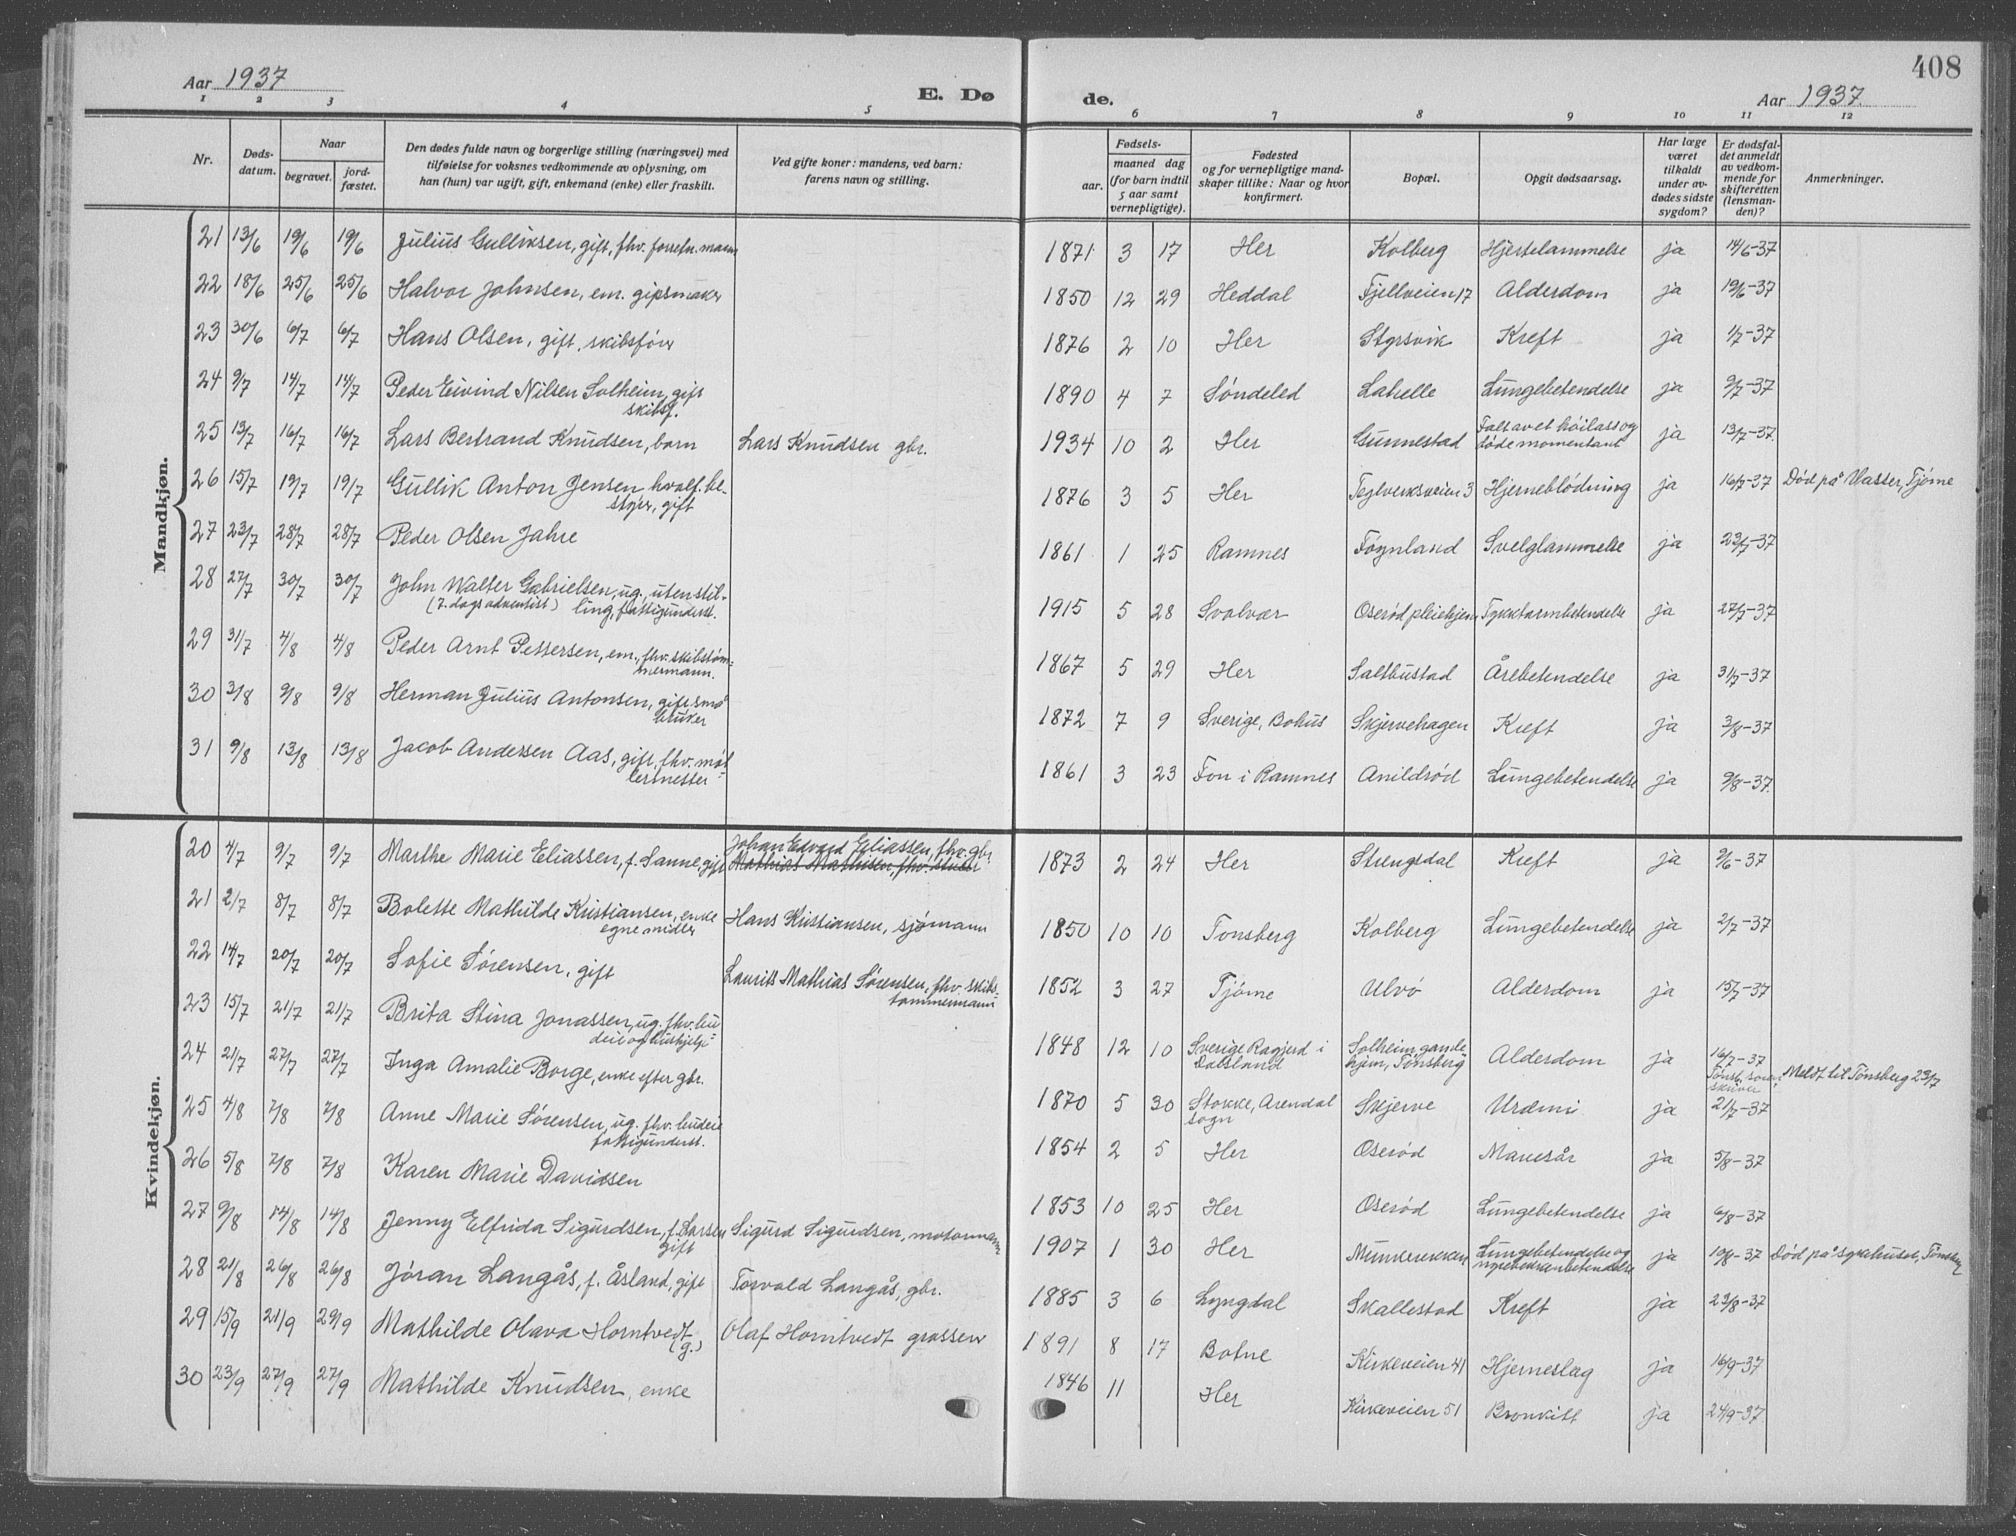 408
Aar 1937
E. Dø
de.
Aar 1937.
1 2 3 4 5 6 7 8 9 10 11 12
Nr.
Døds-
datum.
Naar
begravet.
jord-
fæstet.
Den dødes fulde navn og borgerlige stilling (næringsvei) med
tilføielse for voksnes vedkommende av oplysning, om
han (hun) var ugift, gift, enkemand (enke) eller fraskilt.
Ved gifte koner: mandens, ved barn:
farens navn og stilling.
Fødsels-
aar.
maaned dag
(for barn indtil
5 aar samt
vernepligtige).
Fødested
og for vernepligtige mand-
skaper tillike: Naar og hvor
konfirmert.
Bopæl.
Opgit dødsaarsag.
Har læge
været
tilkaldt
under av-
dødes sidste
sygdom?
Er dødsfal-
det anmeldt
av vedkom-
mende for
skifteretten
(lensman-
den)?
Anmerkninger.
Mandkjøn.
21 13/6 19/6 19/6 Julius Gulliksen, gift, fhv. forretn.mann 1871 3 17 Her Kolberg Hjertelammelse ja 14/6-37
22 18/6 25/6 25/6 Halvor Johnsen, em. gipsmaker 1850 12 29 Heddal Fjellveien 17 Alderdom ja 19/6-37
23 30/6 6/7 6/7 Hans Olsen, gift, skibsfører 1876 2 10 Her Styrsvik Kreft ja 1/7-37
24 9/7 14/7 14/7 Peder Eivind Nilsen Solheim, gift
skibsf. 1890 4 7 Søndeled Lahelle Lungebetendelse ja 9/7-37
25 13/7 16/7 16/7 Lars Bertrand Knudsen, barn Lars Knudsen gbr. 1934 10 2 Her Gunnestad Falt av et høilass og
døde momentant ja 13/7-37.
26 15/7 19/7 19/7 Gullik Anton Jensen hvalf.be-
styrer, gift 1876 3 5 Her Teglverksveien 3 Hjerneblødning ja 16/7-37 Død på Vasser, Tjøme
27 23/7 28/7 28/7 Peder Olsen Jahre 1861 1 25 Ramnes Føynland Svelglammelse ja 23/7-37
28 27/7 30/7 30/7 John Walter Gabrielsen, ug., uten stil-
(7. dags adventist) ling, fattigunderst. 1915 5 28 Svolvær Oserød pleiehjem Tykktarmbetendelse ja 27/7-37
29 31/7 4/8 4/8 Peder Arnt Pettersen, em., fhv. skibstøm-
mermann. 1867 5 29 Her Saltbustad Årebetendelse ja 31/7-37
30 3/8 9/8 9/8 Herman Julius Antonsen, gift små
bruker 1872 7 9 Sverige, Bohus Skjervehagen Kreft ja 3/8-37
31 9/8 13/8 13/8 Jacob Andersen Aas, gift, fhv. møl-
lermester 1861 3 23 Fon i Ramnes Anildrød Lungebetendelse ja 9/8-37.
Kvindekjøn.
20 4/7 9/7 9/7 Marthe Marie Eliassen, f. Sanne, gift Johan Edvard Eliassen, fhv. gbr.
Mathias Mathisen, fhv. 1873 2 24 Her Strengsdal Kreft ja 9/6-37
21 2/7 8/7 8/7 Bolette Mathilde Kristiansen, enke
egne midler Hans Kristiansen, sjømann 1850 10 10 Tønsberg Kolberg Lungebetendelse ja 2/7-37
22 14/7 20/7 20/7 Sofie Sørensen, gift Laurits Mathias Sørensen, fhv. skibs-
tømmermann 1852 3 27 Tjøme Ulvø Alderdom ja 15/7-37
23 15/7 21/7 21/7 Brita Stina Jonassen, ug. fhv. bu
deie og hushjelp 1848 12 10 Sverige i
Dalsland Solheim gamle
hjem, Tønsberg Alderdom ja 16/7-37
24 21/7 27/7 27/7 Inga Amalie Borge, enke efter gbr. 1870 5 30 Stokke, Arendal
sogn Skjerve Urämi ja 21/7-37 Meldt til Tønsberg 23/7
25 4/8 7/8 7/8 Anne Marie Sørensen, ug. fhv. budeie
fattigunderst. 1854 2 5 Her Oserød Mavesår ja 5/8-37
26 5/8 7/8 7/8 Karen Marie Davidsen 1853 10 25 Her Oserød Lungebetendelse ja 6/8-37
27 9/8 14/8 14/8 Jenny Elfrida Sigurdsen, f. Larsen
gift Sigurd Sigurdsen, motormann 1907 1 30 Her Munkerekken Lungebetendelse og
ja 10/8-37 Død på sykehuset, Tønsberg
28 21/8 26/8 26/8 Jøran Langås, f. Åsland, gift Torvald Langås, gbr. 1885 3 6 Lyngdal Skallestad Kreft ja 23/8-37
29 15/9 21/9 29/9 Mathilde Olava Horntvedt
(g.) Olaf Horntvedt grosserer 1891 8 17 Botne Kirkeveien 41 Hjerneslag ja 16/9-37
30 23/9 27/9 27/9 Mathilde Knudsen, enke 1846 11 Her Kirkeveien 51 Bronkitt ja 24/9-37.